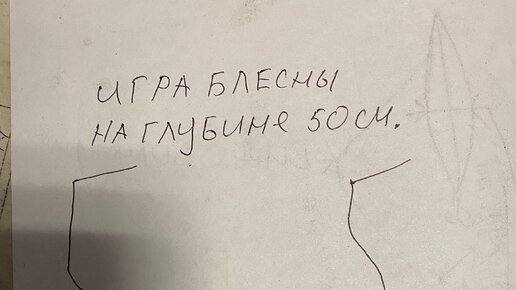 ИГРА БЛЕСНЫ
НА ГЛУБИНЕ 50 СМ.